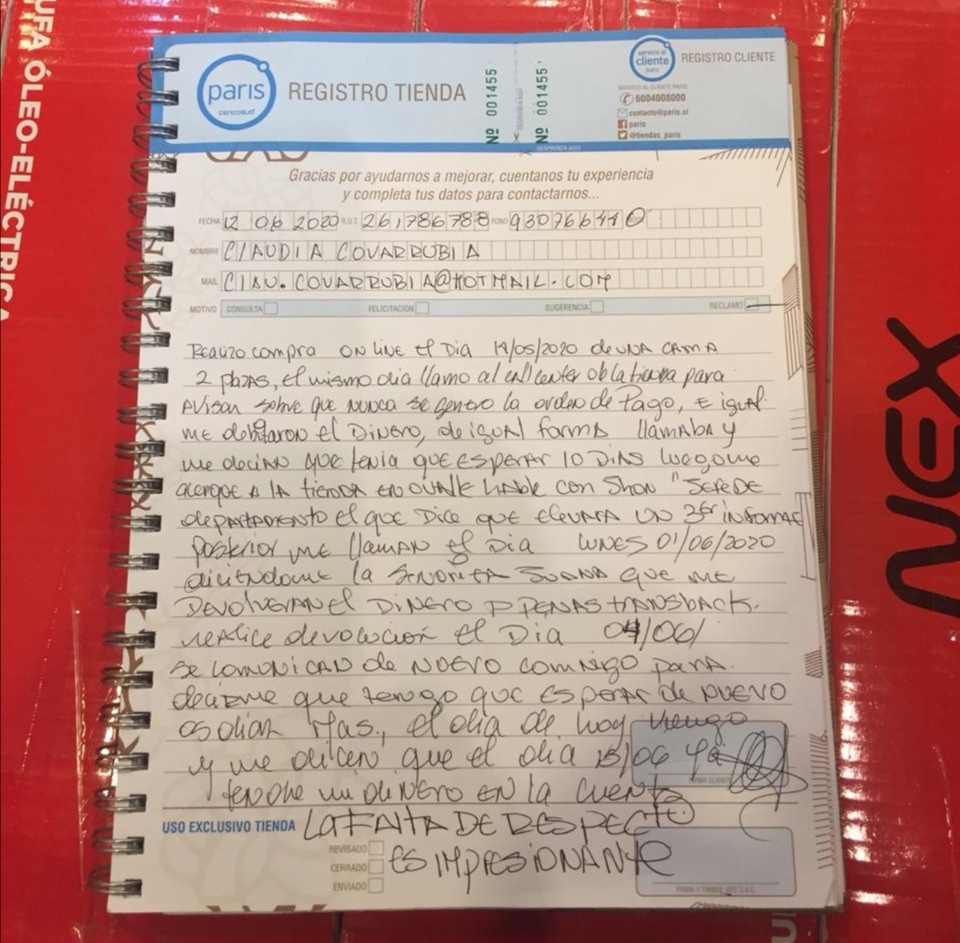 UFA ÓLEO-ELÉCTRICA
NEX
paris
cencosud
REGISTRO TIENDA
Nº 001455
Nº 001455
servicio al
cliente
paris
REGISTRO CLIENTE
SERVICIO AL CLIENTE PARIS
6004008000
contacto@paris.cl
paris
@tiendas_paris
DESPRENDA AQUI
Gracias por ayudarnos a mejorar, cuentanos tu experiencia
y completa tus datos para contactarnos...
FECHA 12 06 2020 R.U.T. 261786788 FONO 930766440
NOMBRE CLAUDIA COVARRUBIA
MAIL CLAU.COVARRUBIA@HOTMAIL.COM
MOTIVO CONSULTA FELICITACION SUGERENCIA RECLAMO
Realizo compra ON LINE el Dia 19/05/2020 de UNA CAMA
2 plazas, el mismo dia llamo al de la tienda para
Avisar sobre que nunca se genero la orden de Pago, E igual
me debitaron el DINERO, de igual forma llamaba y
me decian que tenia que esperar 10 DIAS luego me
acerque A la tienda EN DONDE Hable con Shon "JEFE DE
departamento el que Dice que elevara un 3er informe
Posterior me llaman el Dia LUNES 01/06/2020
diciendome la SEÑORITA JUANA que me
DEVOLVERAN el DINERO transback.
realice devolucion el Dia 04/06/
se comunican de NUEVO conmigo para
decirme que tengo que esperar de NUEVO
dias Mas, el dia de hoy vengo
y me dicen que el dia 15/06 Ya
tendre mi DINERO EN la cuenta
FIRMA CLIENTE
USO EXCLUSIVO TIENDA LA FALTA DE RESPECTO
ES IMPRESIONANTE
REVISADO
CERRADO
ENVIADO